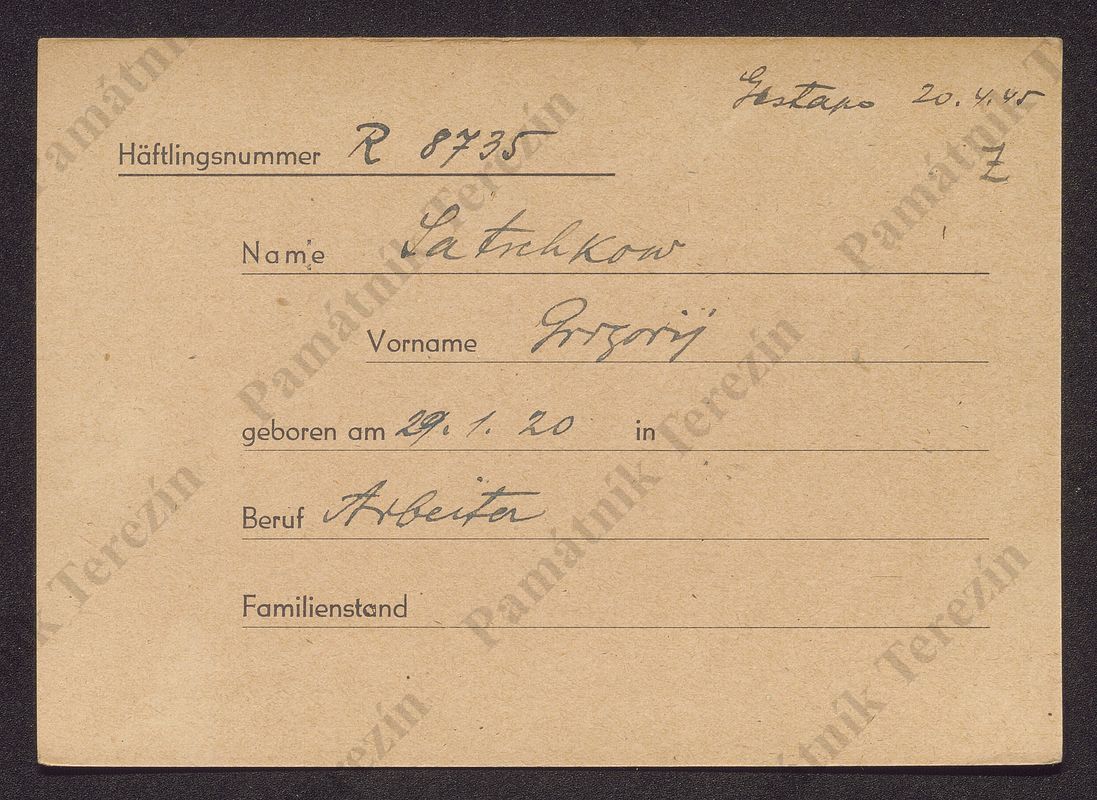 Gestapo 20.4.45
Häftlingsnummer R 8735
Z
Name Satschkow
Vorname Grigorij
geboren am 29. 1. 20 in
Beruf Arbeiter
Familienstand
Památník Terezín